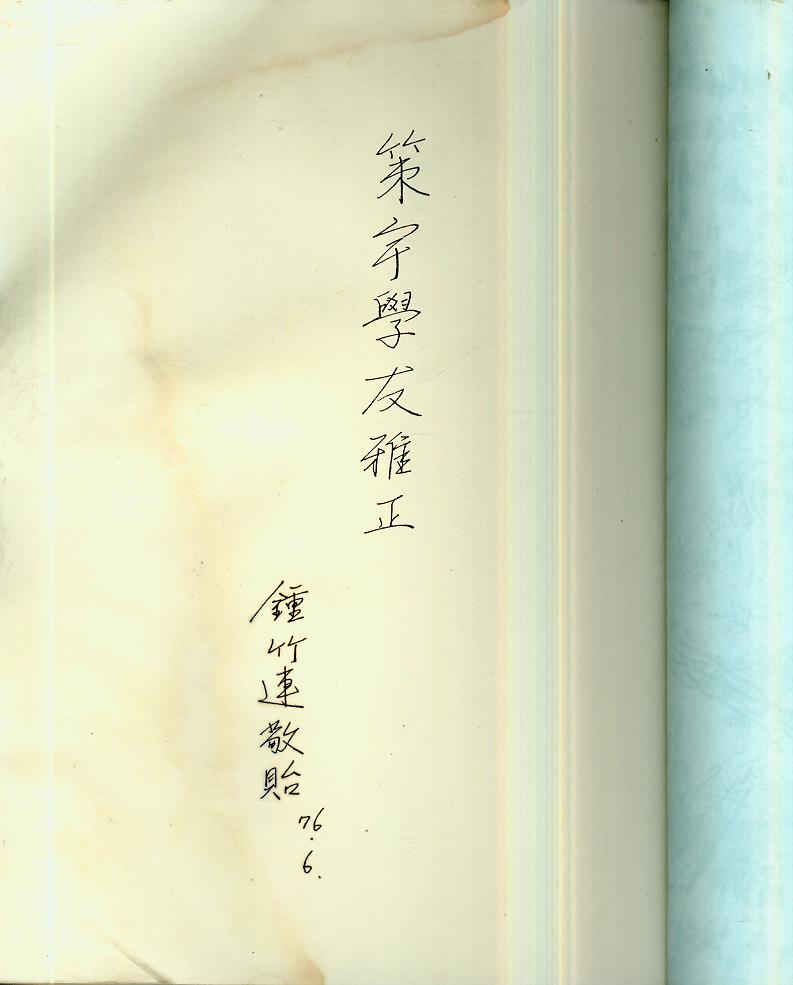 策宇學友雅正
鍾竹連敬貽
76.6.